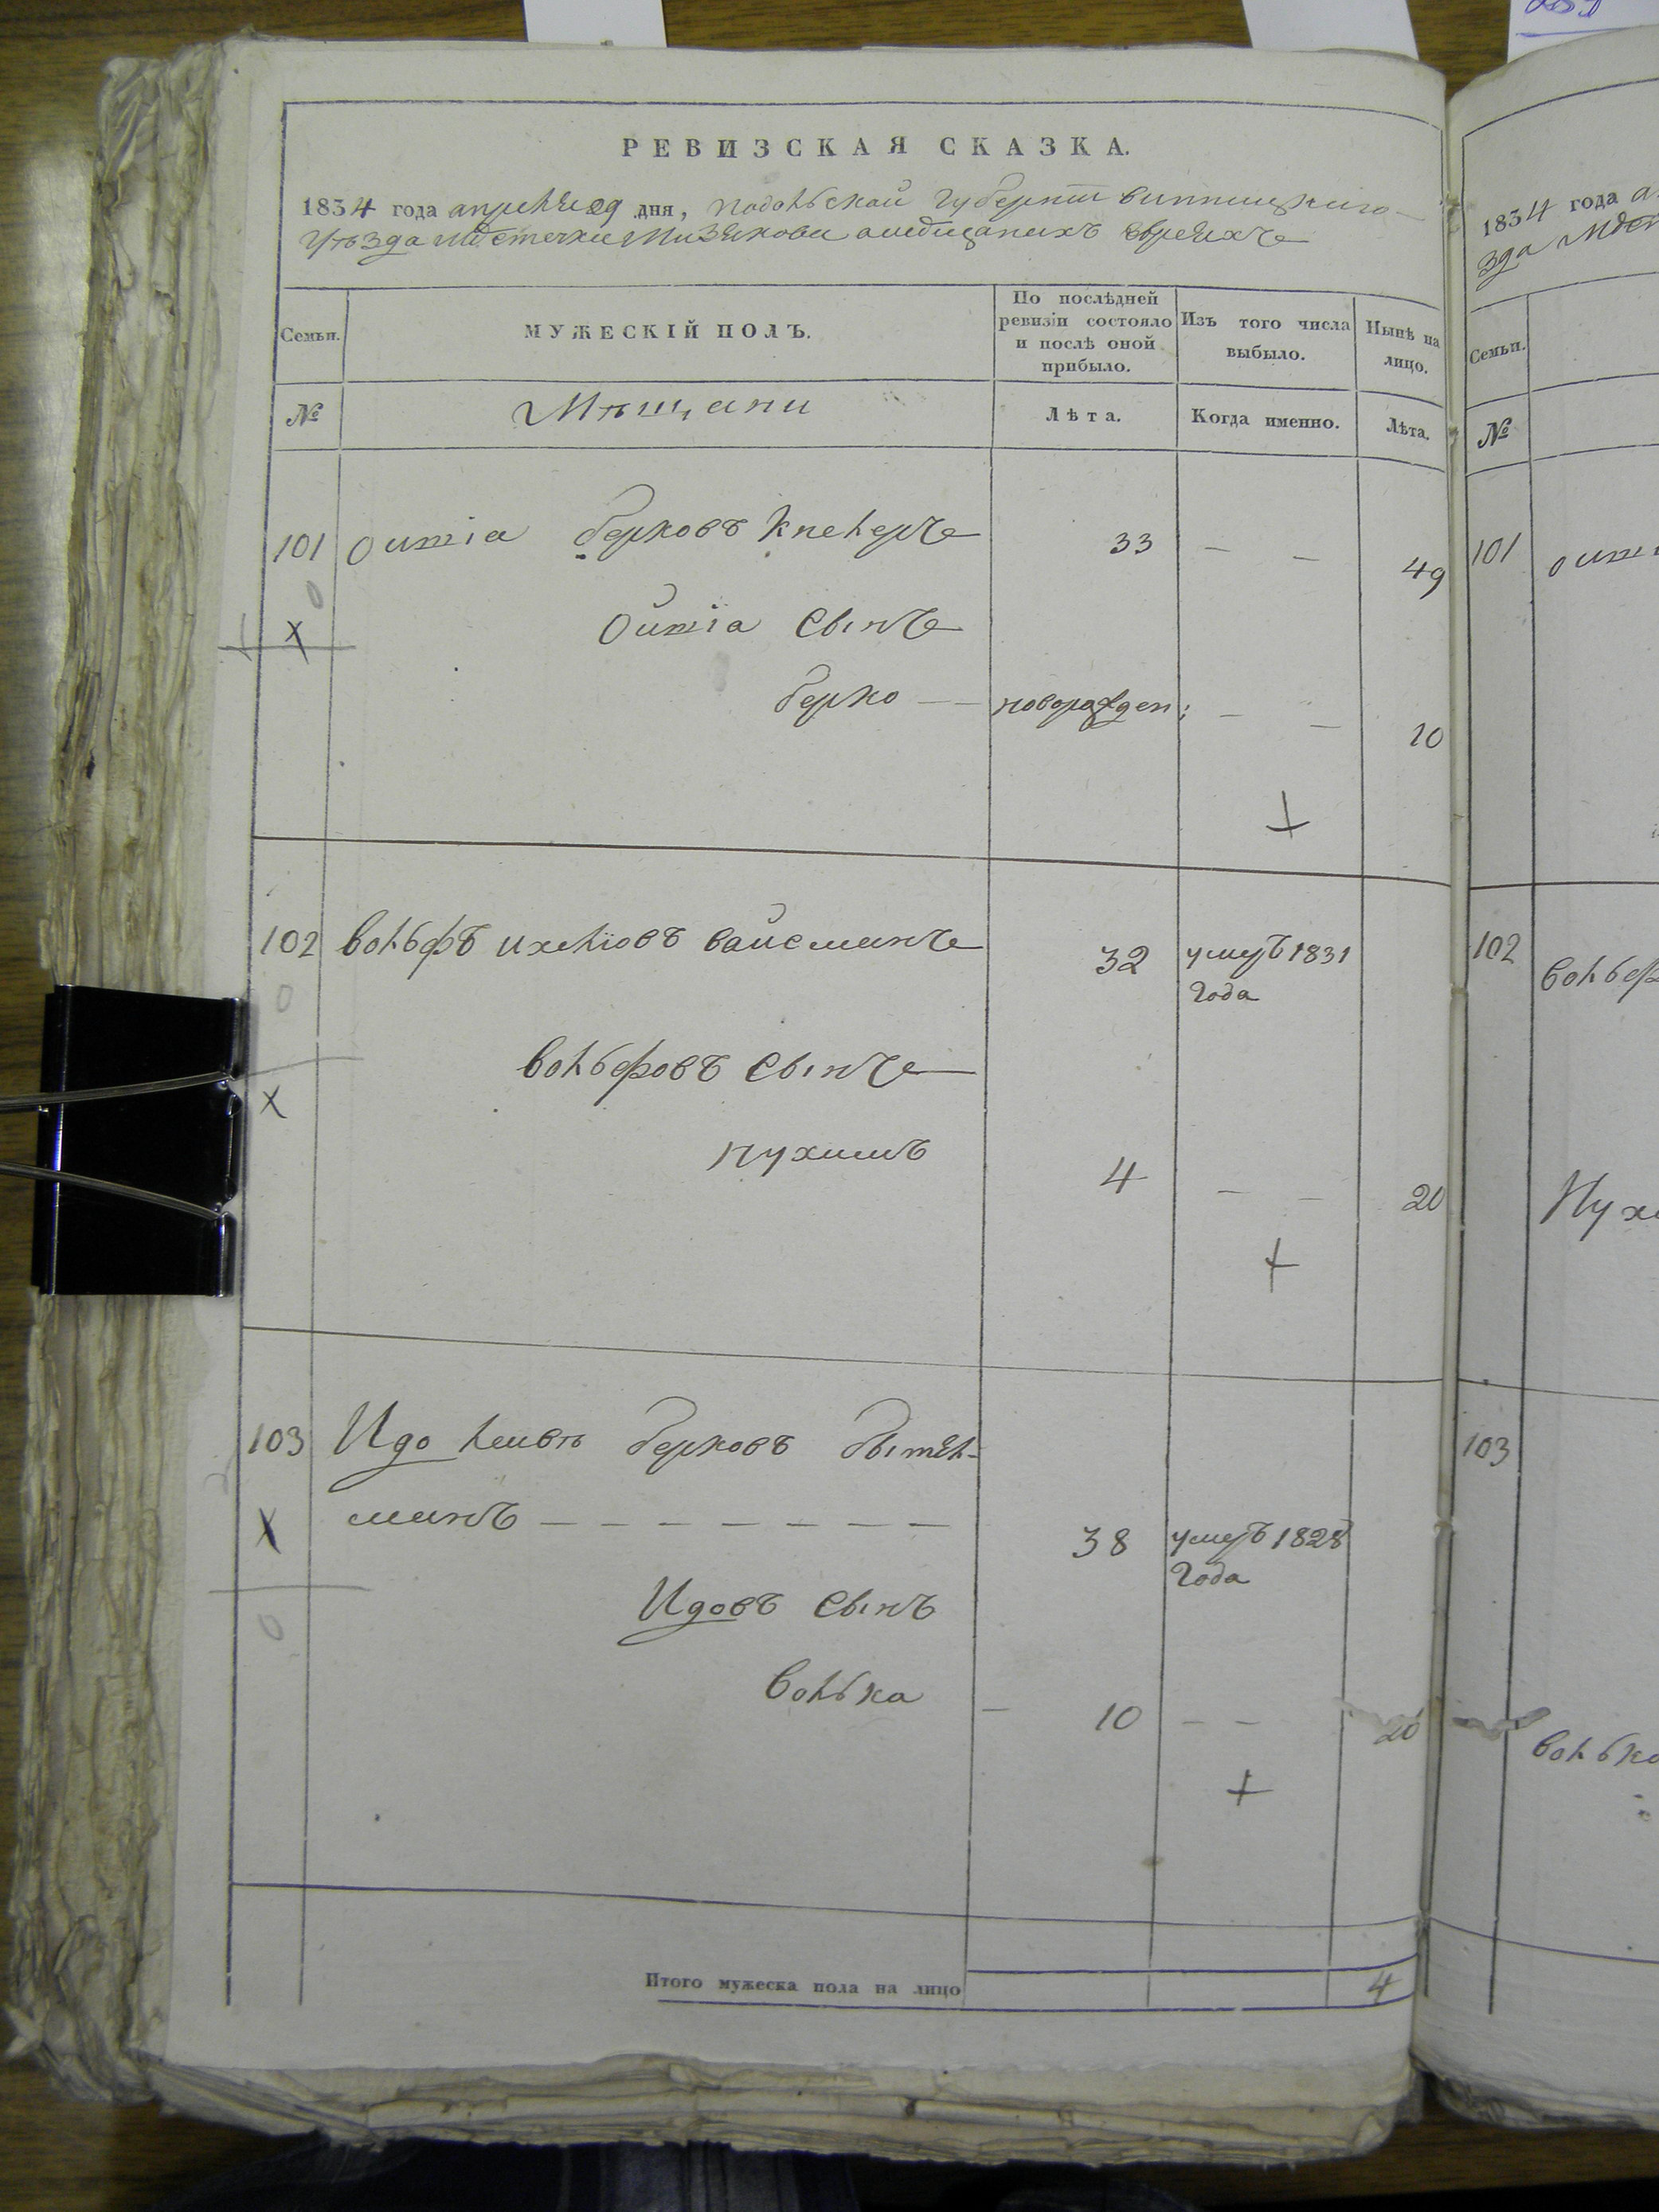 РЕВИЗСКАЯ СКАЗКА.
1834 года апреля 29 дня, подольской губернии винницкого
уезда местечка Мизякова о мещанахъ евреяхъ
Семьи.
МУЖЕСКІЙ ПОЛЪ.
По послѣдней ревизіи состояло и послѣ оной прибыло.
Изъ того числа выбыло.
Нынѣ на лицо.
№
Мѣщани
Лѣта.
Когда именно.
Лѣта.
101 берковъ кнелеръ 33 – – 49
сынъ
берко — новорожден: – – 10
102 вольфъ ихелiовъ вайсманъ 32 умеръ 1831
года
вольфовъ сынъ
нухимъ 4 – – 20
103 Идо лейвъ берковъ
манъ – – – – – – – 38 умеръ 1828
года
Идовъ сынъ
волька – 10 – – 20
Итого мужеска пола на лицо 4
1834 года
Семьи.
№
101
102
вольф
Нухи
103
волька